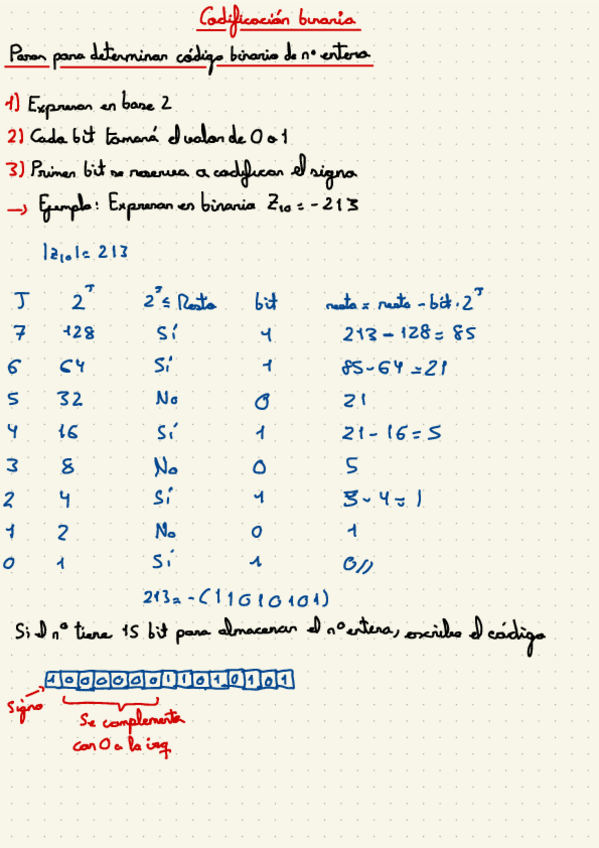 Codificación binaria
Pasos para determinar código binario de nº enteros
1) Expresar en base 2
2) Cada bit tomará el valor de 0 o 1
3) Primer bit se reserva a codificar el signo
→ Ejemplo: Expresar en binario Z₁₀ = -213
|z₁₀| = 213
J 2ᴶ 2ᴶ ≤ Resto bit resto = resto - bit · 2ᴶ
7 128 Sí 1 213 - 128 = 85
6 64 Sí 1 85 - 64 = 21
5 32 No 0 21
4 16 Sí 1 21 - 16 = 5
3 8 No 0 5
2 4 Sí 1 5 - 4 = 1
1 2 No 0 1
0 1 Sí 1 0//
213 = -(11010101)
Si el nº tiene 15 bit para almacenar el nº entero, escribe el código
1 0 0 0 0 0 0 1 1 0 1 0 1 0 1
Signo
Se complementa
con 0 a la izq